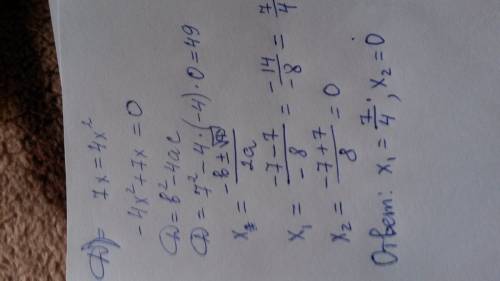 D) 7x = 4x²
-4x² + 7x = 0
D = b² - 4ac
D = 7² - 4·(-4)·0 = 49
x = (-b ± √D) / 2a
x₁ = (-7-7) / -8 = -14 / -8 = 7/4
x₂ = (-7+7) / 8 = 0
Ответ: x₁ = 7/4; x₂ = 0